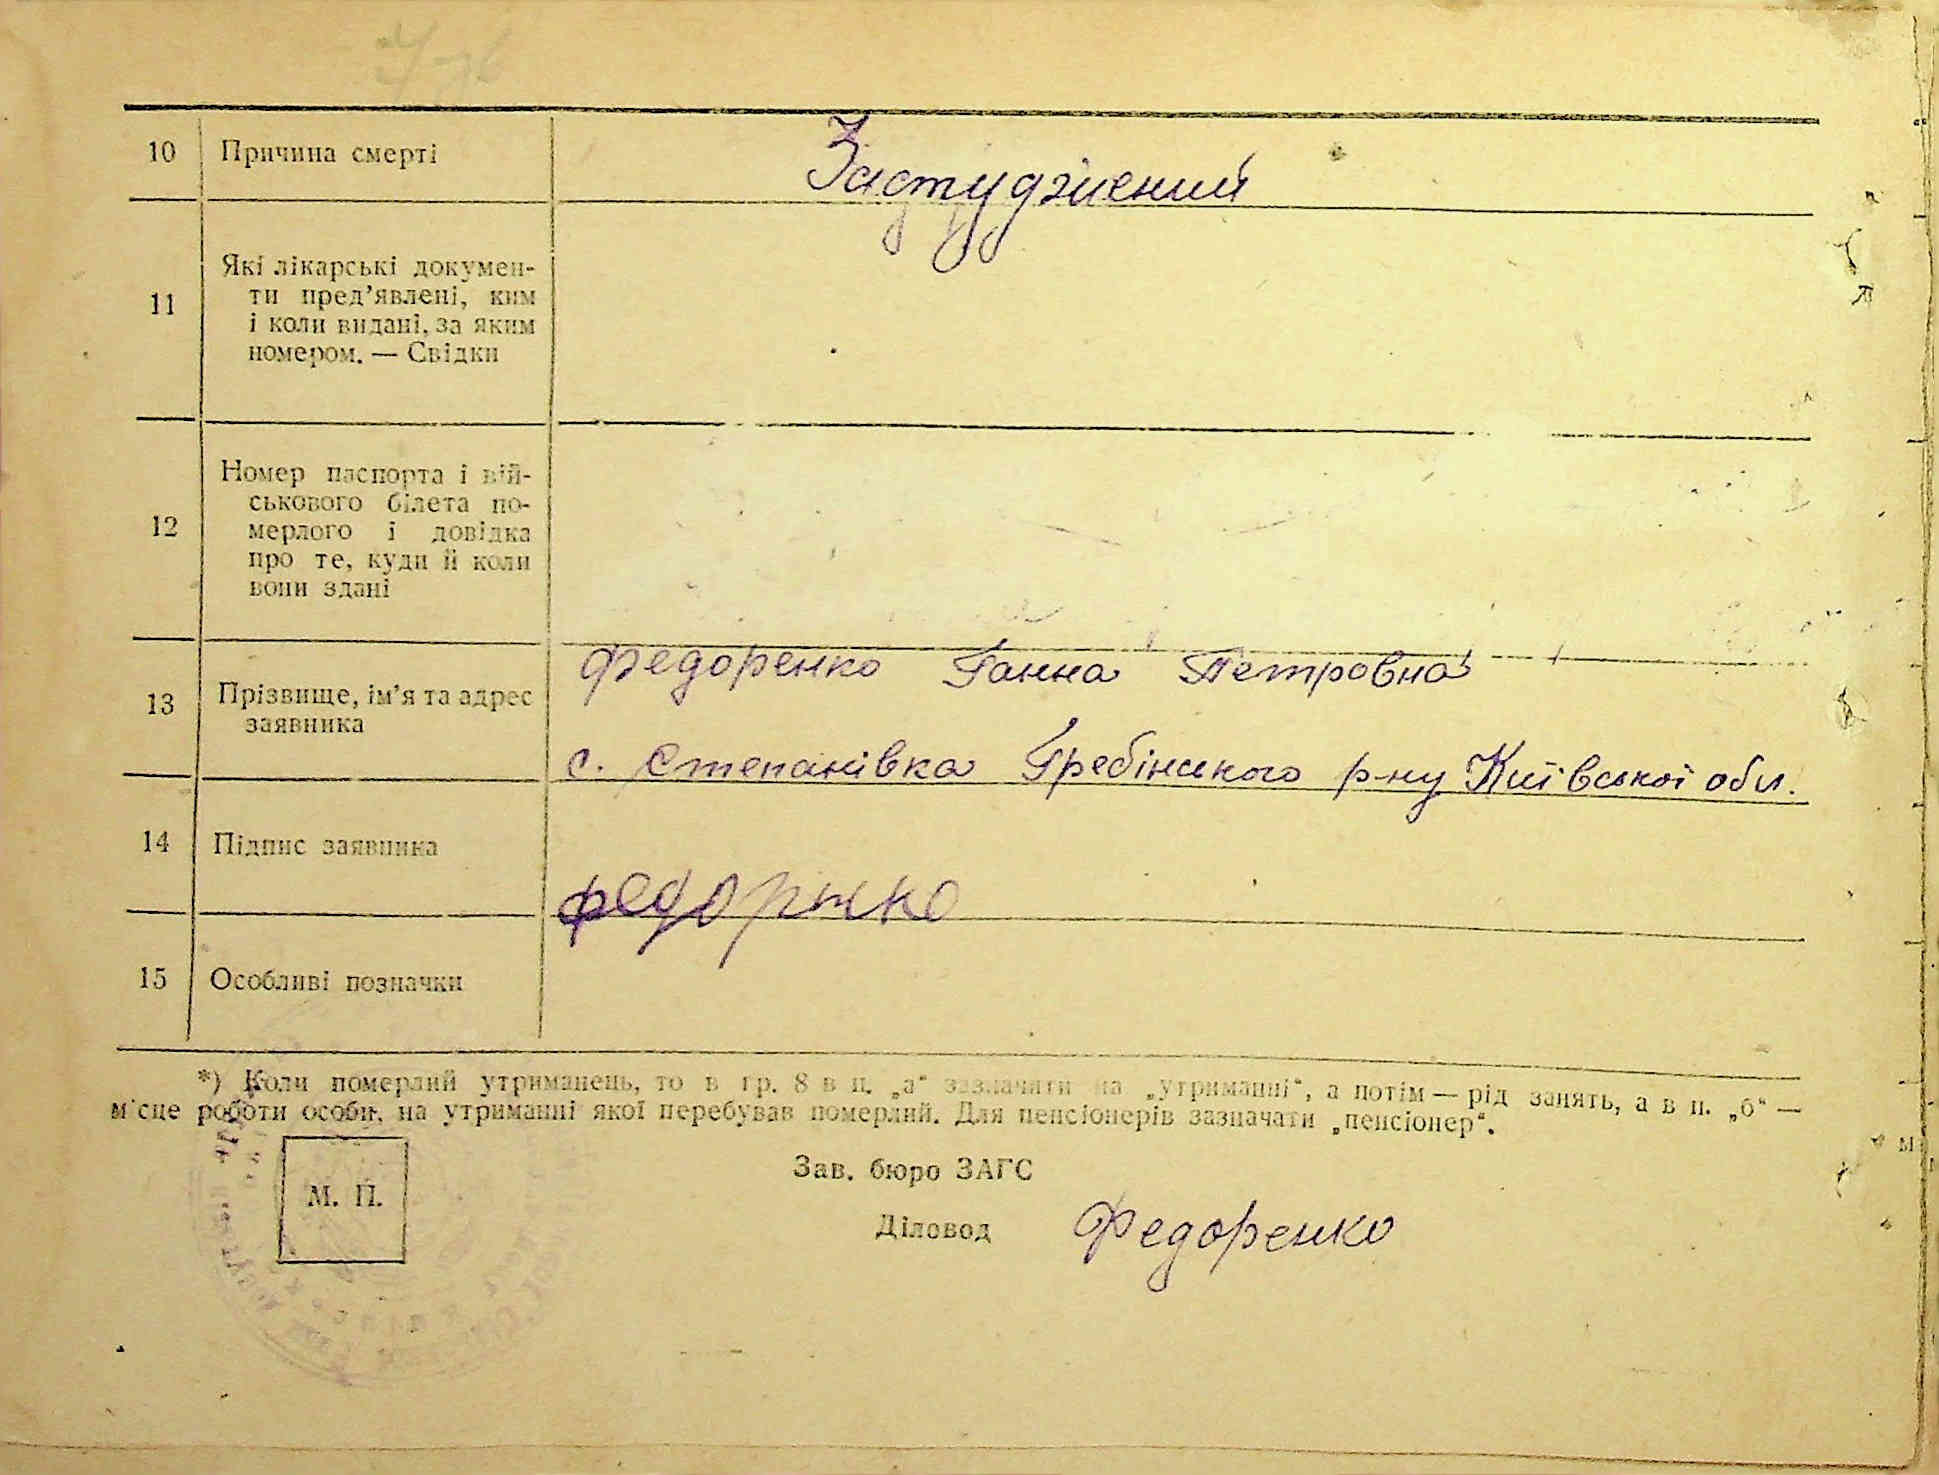 10 Причина смерті Застуджений
11 Які лікарські докумен-
ти пред’явлені, ким
і коли видані, за яким
номером. — Свідки
12 Номер паспорта і вій-
ськового білета по-
мерлого і довідка
про те, куди й коли
вони здані
13 Прізвище, ім’я та адрес
заявника
Федоренко Ганна Петровна
с. Степанівка Гребінського р-ну Київської обл.
14 Підпис заявника
Федорнко
15 Особливі позначки
*) Коли померлий утриманець, то в гр. 8 в п. „а“ зазначити на „утриманні“, а потім — рід занять, а в п. „б“ —
місце роботи особи, на утриманні якої перебував померлий. Для пенсіонерів зазначати „пенсіонер“.
М. П.
Зав. бюро ЗАГС
Діловод Федоренко